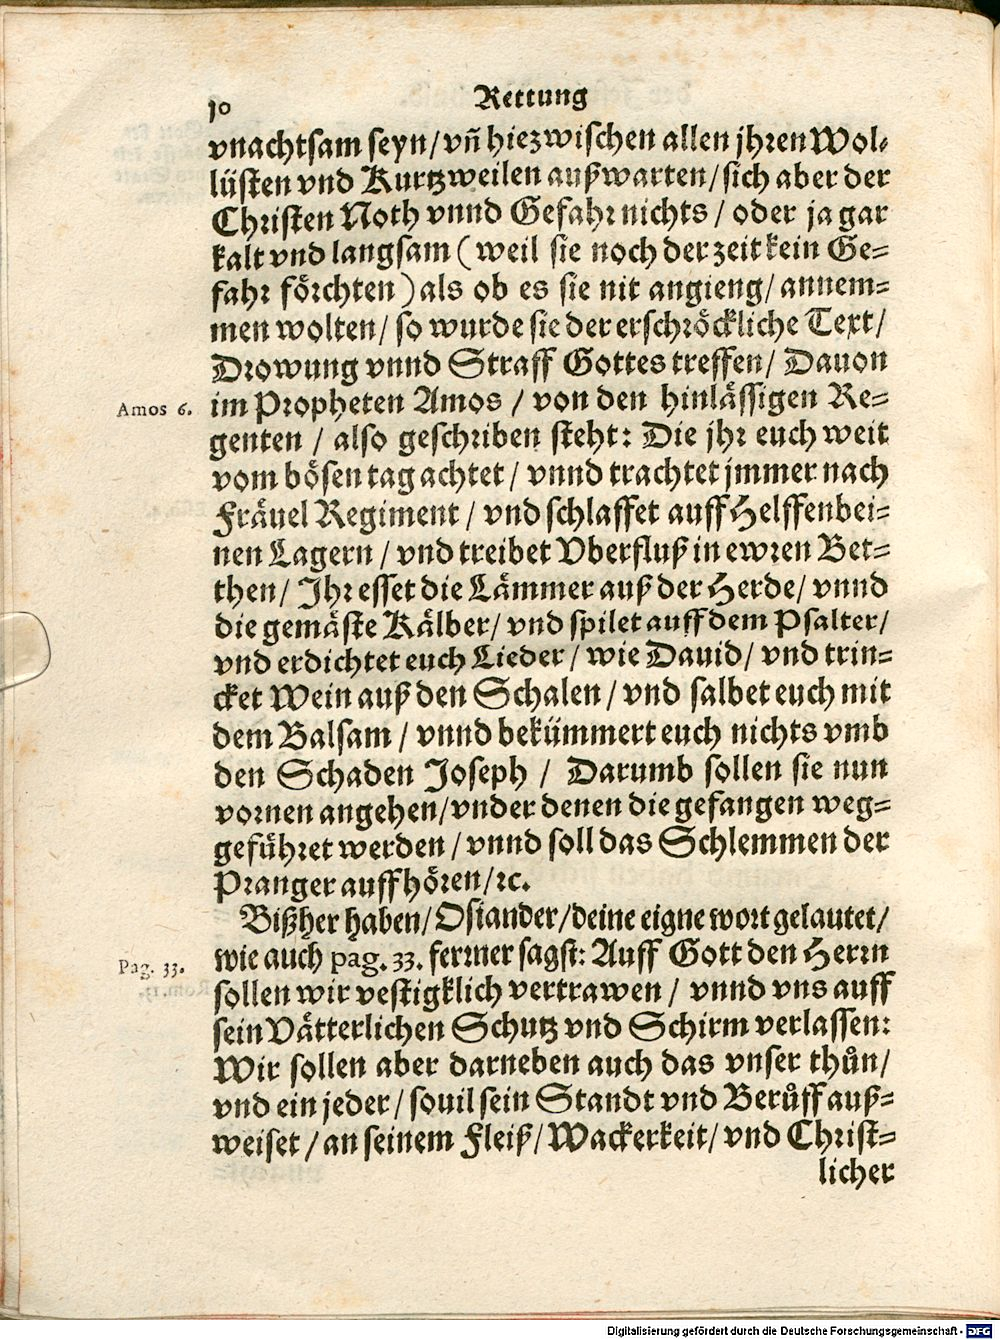 10
Rettung
vnachtsam seyn/vñ hiezwischen allen jhren Wol-
lüsten vnd Kurtzweilen außwarten/sich aber der
Christen Noth vnnd Gefahr nichts / oder ja gar
kalt vnd langsam (weil sie noch der zeit kein Ge-
fahr förchten) als ob es sie nit angieng/ annem-
men wolten/ so wurde sie der erschröckliche Text/
Drowung vnnd Straff Gottes treffen/ Dauon
Amos 6.
im Propheten Amos / von den hinlässigen Re-
genten / also geschriben steht: Die jhr euch weit
vom bösen tag achtet / vnnd trachtet jmmer nach
Fräuel Regiment / vnd schlaffet auff Helffenbei-
nen Lagern / vnd treibet Vberfluß in ewren Bet-
then/ Jhr esset die Lämmer auß der Herde/ vnnd
die gemäste Kälber/ vnd spilet auff dem Psalter/
vnd erdichtet euch Lieder / wie Dauid/ vnd trin-
cket Wein auß den Schalen / vnd salbet euch mit
dem Balsam / vnnd bekümmert euch nichts vmb
den Schaden Joseph / Darumb sollen sie nun
vornen angehen/vnder denen die gefangen weg-
geführet werden / vnnd soll das Schlemmen der
Pranger auffhören/ꝛc.
Bißher haben/Osiander/deine eigne wort gelautet/
Pag. 33.
wie auch pag. 33. ferrner sagst: Auff Gott den Herrn
sollen wir vestigklich vertrawen / vnnd vns auff
sein Vätterlichen Schutz vnd Schirm verlassen:
Wir sollen aber darneben auch das vnser thůn/
vnd ein jeder / souil sein Standt vnd Berůff auß-
weiset / an seinem Fleiß/ Wackerkeit/ vnd Christ-
licher
Digitalisierung gefördert durch die Deutsche Forschungsgemeinschaft - DFG